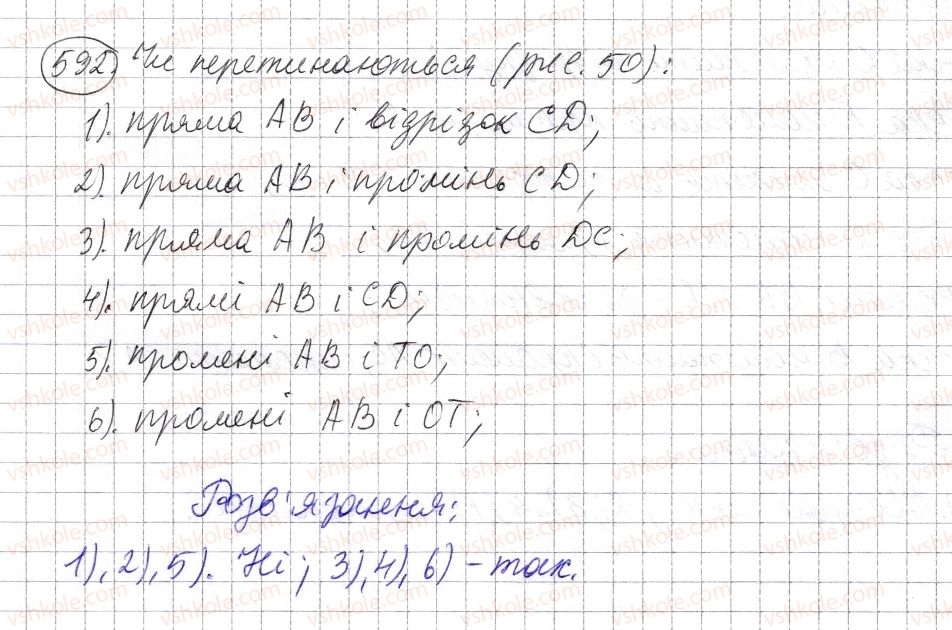 592. Чи перетинаються (рис. 50):
1). пряма АВ і відрізок CD;
2). пряма АВ і промінь CD;
3). пряма АВ і промінь DC;
4). прямі АВ і CD;
5). промені АВ і ТО;
6). промені АВ і ОТ;
Розв'язання:
1), 2), 5). Ні; 3), 4), 6) - так.